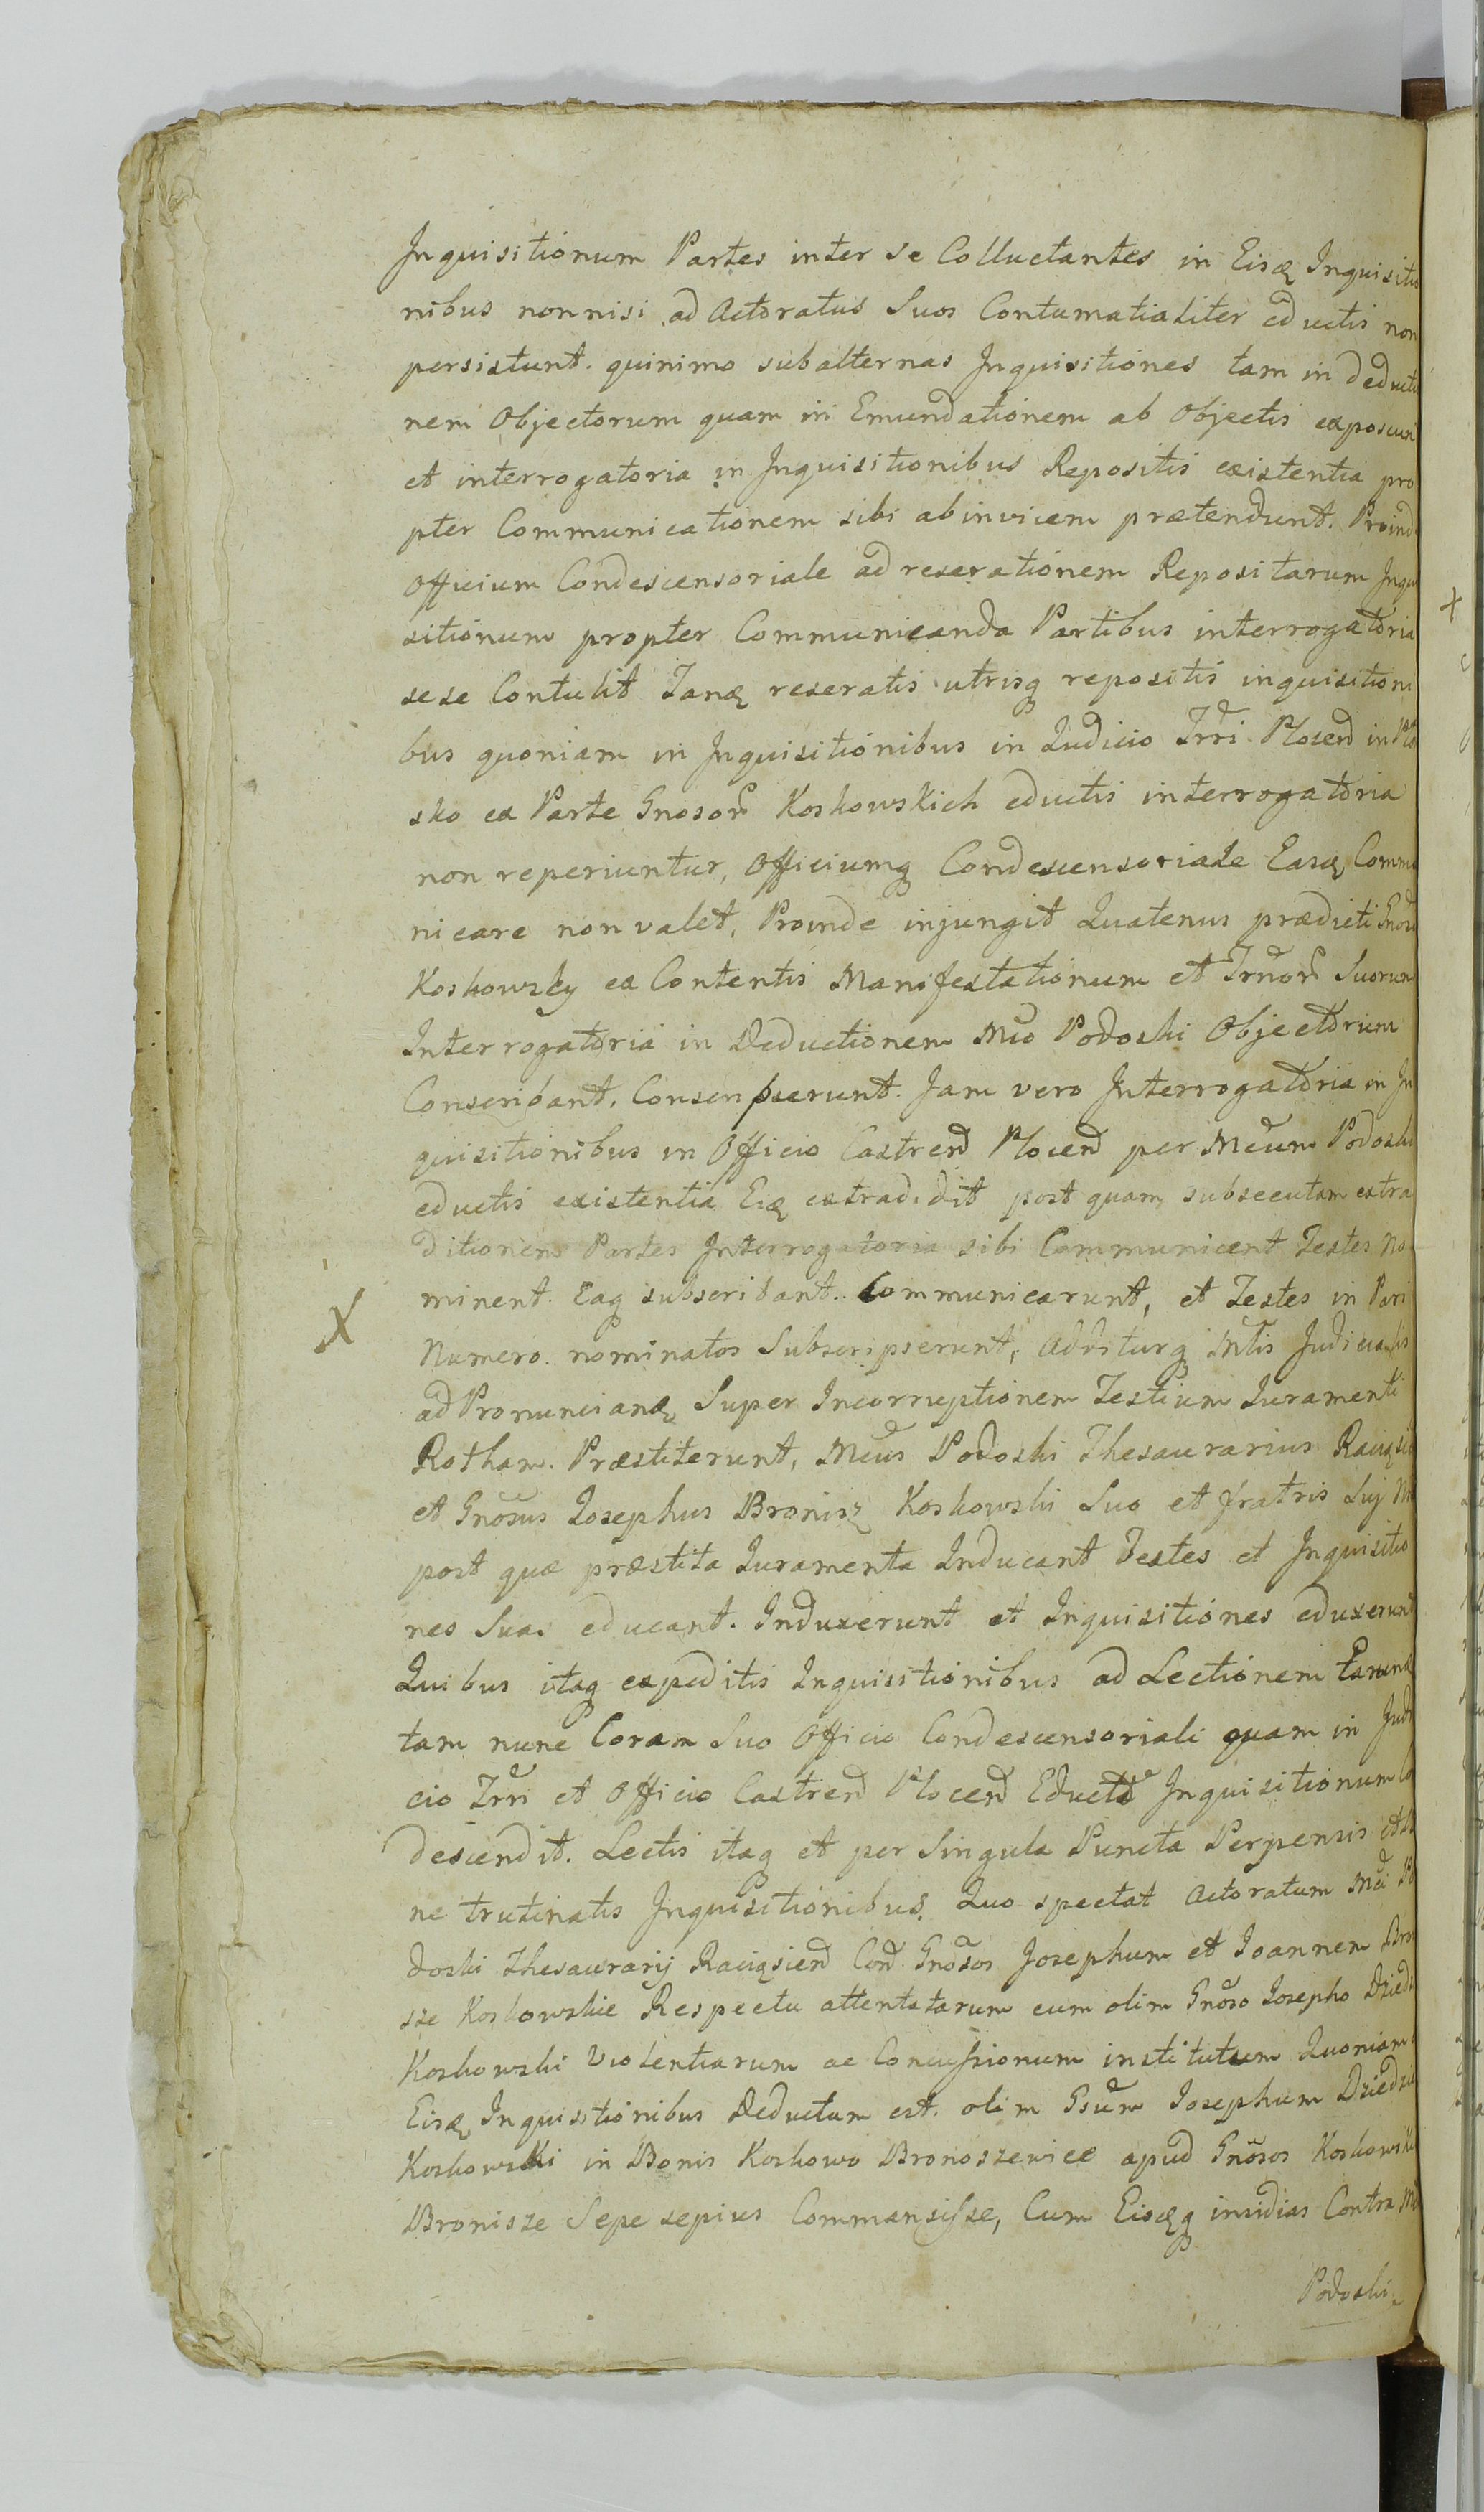 Inquisitionum Partes inter se Colluctantes in Eisq Inquisitio
nibus nonnisi ad Actoratus Suos Contumatialiter eductis non
persistunt. quinimo subalternas Inquisitiones tam in deductio
nem Objectorum quam in Emundationem ab Objectis exposcun
et interrogatoria in Inquisitionibus Repositis existentia pro
pter Communicationem sibi abinvicem prætendunt. Proind
Officium Condescensoriale ad reserationem Repositarum Inqui
sitionum propter Communicanda Partibus interrogatoria
sese Contulit Tanq reseratis utrisq repositis inquisitioni
bus quoniam in Inquisitionibus in Iudicio Trri Plocen in Plo
sko ex Parte Gnosor Koskowskich eductis interrogatoria
non reperiuntur, Officiumq Condescensoriale Easq Commu
nicare non valet, Proinde injungit Quatenus prædicti Gnosi
Koskowscy ex Contentis Manifestationum et Trnor Suorum
Interrogatoria in Deductionem Mco Podoski Objectorum
Conscribant. Conscripserunt. Jam vero Interrogatoria in In
quisitionibus in Officio Castren Plocen per Mcum Podoski
eductis existentia Eisq extradidit post quam subsecutam extra
ditionem Partes Interrogatoria sibi Communicent Testes No
minent. Eaq subscribant. Communicarunt, et Testes in Pari
Numero nominatos Subscripserunt, Additurq Mtis Judicialis
ad Pronuncianq Super Incorruptionem Testium Iuramenti
Rotham. Præstiterunt, Mcus Podoski Thesaurarius Raciąsen
et Gnosus Iosephus Bronisz Koskowski Suo et fratris Suj Nn
post quæ præstita Iuramenta Inducant Testes et Inquisitio
nes Suas educant. Induxerunt et Inquisitiones eduxerunt
Quibus itaq expeditis Inquisitionibus ad Lectionem
tam nunc Coram Suo Officio Condescensoriali quam in Judi
cio Trri et Officio Castren Plocen Eductar Inquisitionum Con
descendit. Lectis itaq et per Singula Puncta Perpensis et
ne trutinatis Inquisitionibus. Quo spectat Actoratum Mci Po
doski Thesaurarij Raciąsien Con Gnosos Josephum et Ioannem Bro
sze Koskowskie Respectu attentatarum cum olim Gnoso Iosepho Dziedzi
Koskowski Violentiarum ac Concussionum institutum Quoniam
Eisq Inquisitionibus Deductum est. olim Gsum Iosephum Dziedzic
Koskowski in Bonis Koskowo Bronoszewice apud Gnosos Koskowskie
Bronisze Sepe sepius Commansisse, Cum Eisdq insidias Contra Mc
Podoski
X